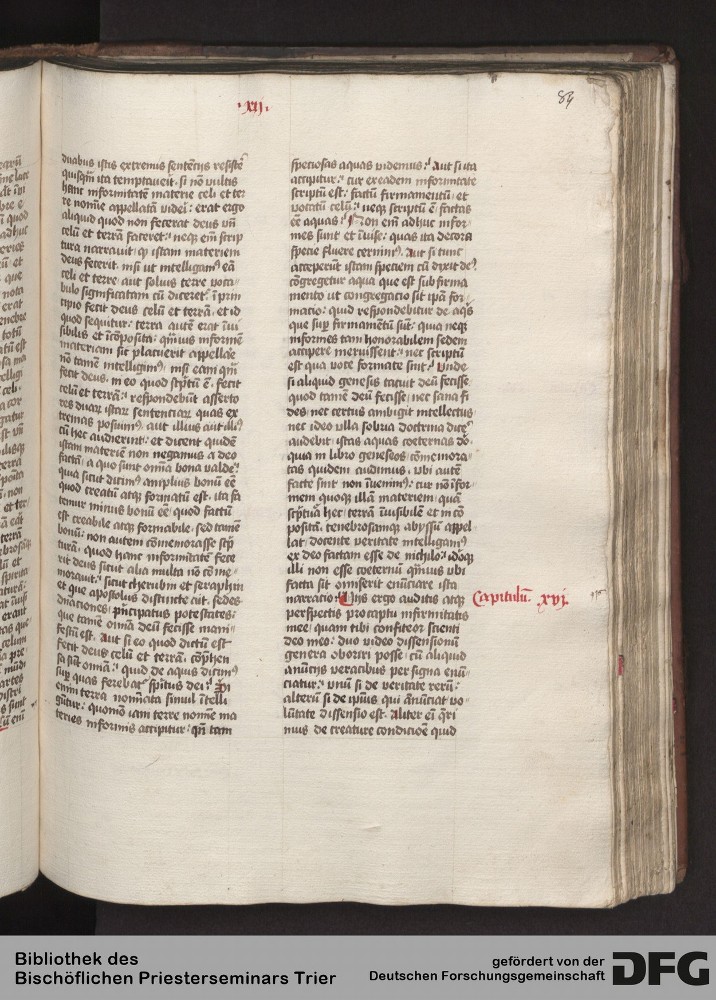 ·XII·
84
duabus istis extremis sentencijs resistē
quisqm̄ ita temptauerit · si nō vultis
hanc informitatē materie celi et ter
re nomīe appellatā videri : erat ergo
aliquid quod non fecerat deus vn̄
celū et terrā faceret : neqꝫ em̄ scrip
tura narrauit qꝫ istam materiem
deus fecerit · nisi ut intelligamꝰ eā
celi et terre · aut solius terre voca
bulo significatam cū diceret : ī prin
cipio fecit deus celū et terrā · et id
quod sequitur : terra autē erat īui
sibilis et īcōposita · qm̄uis informē
materiam sic placuerit appellare
nō tamē intelligimꝰ · nisi eam qm̄
fecit deus · in eo quod scrptū ē · fecit
celū et terrā : respondebūt asserto
res duarꝫ istarꝫ sentenciarꝫ quas ex
tremas posuimꝰ · aut illius aut illiꝰ
cū hec audierint : et dicent quidē
istam materiē non negamus a deo
factā · a quo sunt omīa bona valde :
quia sicut dicimꝰ amplius bonū eē
quod creatū atqꝫ formatū est · ita fa
temur minus bonū eē quod factū
est creabile atqꝫ formabile · sed tamē
bonū : non autem cōmemorasse scrp
turā · quod hanc informitatē fece
rit deus sicut alia multa nō cōme
morauit : sicut cherubin et seraphin
et que apostolus distincte ait · sedes
dn̄aciones · principatus potestates :
que tamē omīa deū fecisse mani
festū est · Aut si eo quod dictū est
fecit deus celū et terrā · cōprehen
sa sūt omīa : quid de aquis dicimꝰ
suꝑ quas ferebatʳ sp̄itus dei : Si
enim terra nomīata simul ītelli
gūtur : quomō iam terre nomīe ma
teries informis accipitur · qn̄ tam
speciosas aquas videmus : Aut si ita
accipitur : cur ex eadem informitate
scriptū est : factū firmamētū · et
vocatū celū : neqꝫ scriptū ē factas
eē aquas : Non em̄ adhuc infor
mes sunt et īuise : quas ita decora
specie fluere cernimꝰ · Aut si tunc
acceperūt istam speciem cū dixit deꝰ ·
cōgregetur aqua que est sub firma
mento ut congregacio sit ipā for
macio : quid respondebitur de aq̄s
que suꝑ firmamētū sūt : quia neqꝫ
informes tam honorabilem sedem
accipere meruissent : nec scriptū
est qua voce formate sint · Unde
si aliquid genesis tacuit deū fecisse
quod tamē deū fecisse · nec sana fi
des · nec certus ambigit intellectus
nec ideo vlla sobria doctrina dicē
audebit · istas aquas coeternas dō ·
quia in libro geneseos · cōmemora
tas quidem audimus · vbi autē
facte sint non īuenimꝰ : cur nō īfor
mem quoqꝫ illā materiem · quā
scrptura hec · terrā īuisibilē et incō
positā · tenebrosamqꝫ abyssū appel
lat · docente veritate intelligamꝰ
ex deo factam esse de nichilo : idoqꝫ
illi non esse coeternū qm̄uis vbi
facta sit omiserit enūciare ista
narracio : Hijs ergo auditis atqꝫ
perspectis pro captu infirmitatis
mee · quam tibi confiteor scienti
deo meo : duo video dissensionū
genera oboriri posse · cū aliquid
a nūcijs veracibus per signa enū
ciatur : vnū si de veritate rerū :
alterū si de ip̄ius qui ānūciat vo
lūtate dissensio est · Aliter ei q̄ri
mus de creature condicioē quid
Capitulū · xvj ·
Bibliothek des
Bischöflichen Priesterseminars Trier
gefördert von der
Deutschen Forschungsgemeinschaft
DFG